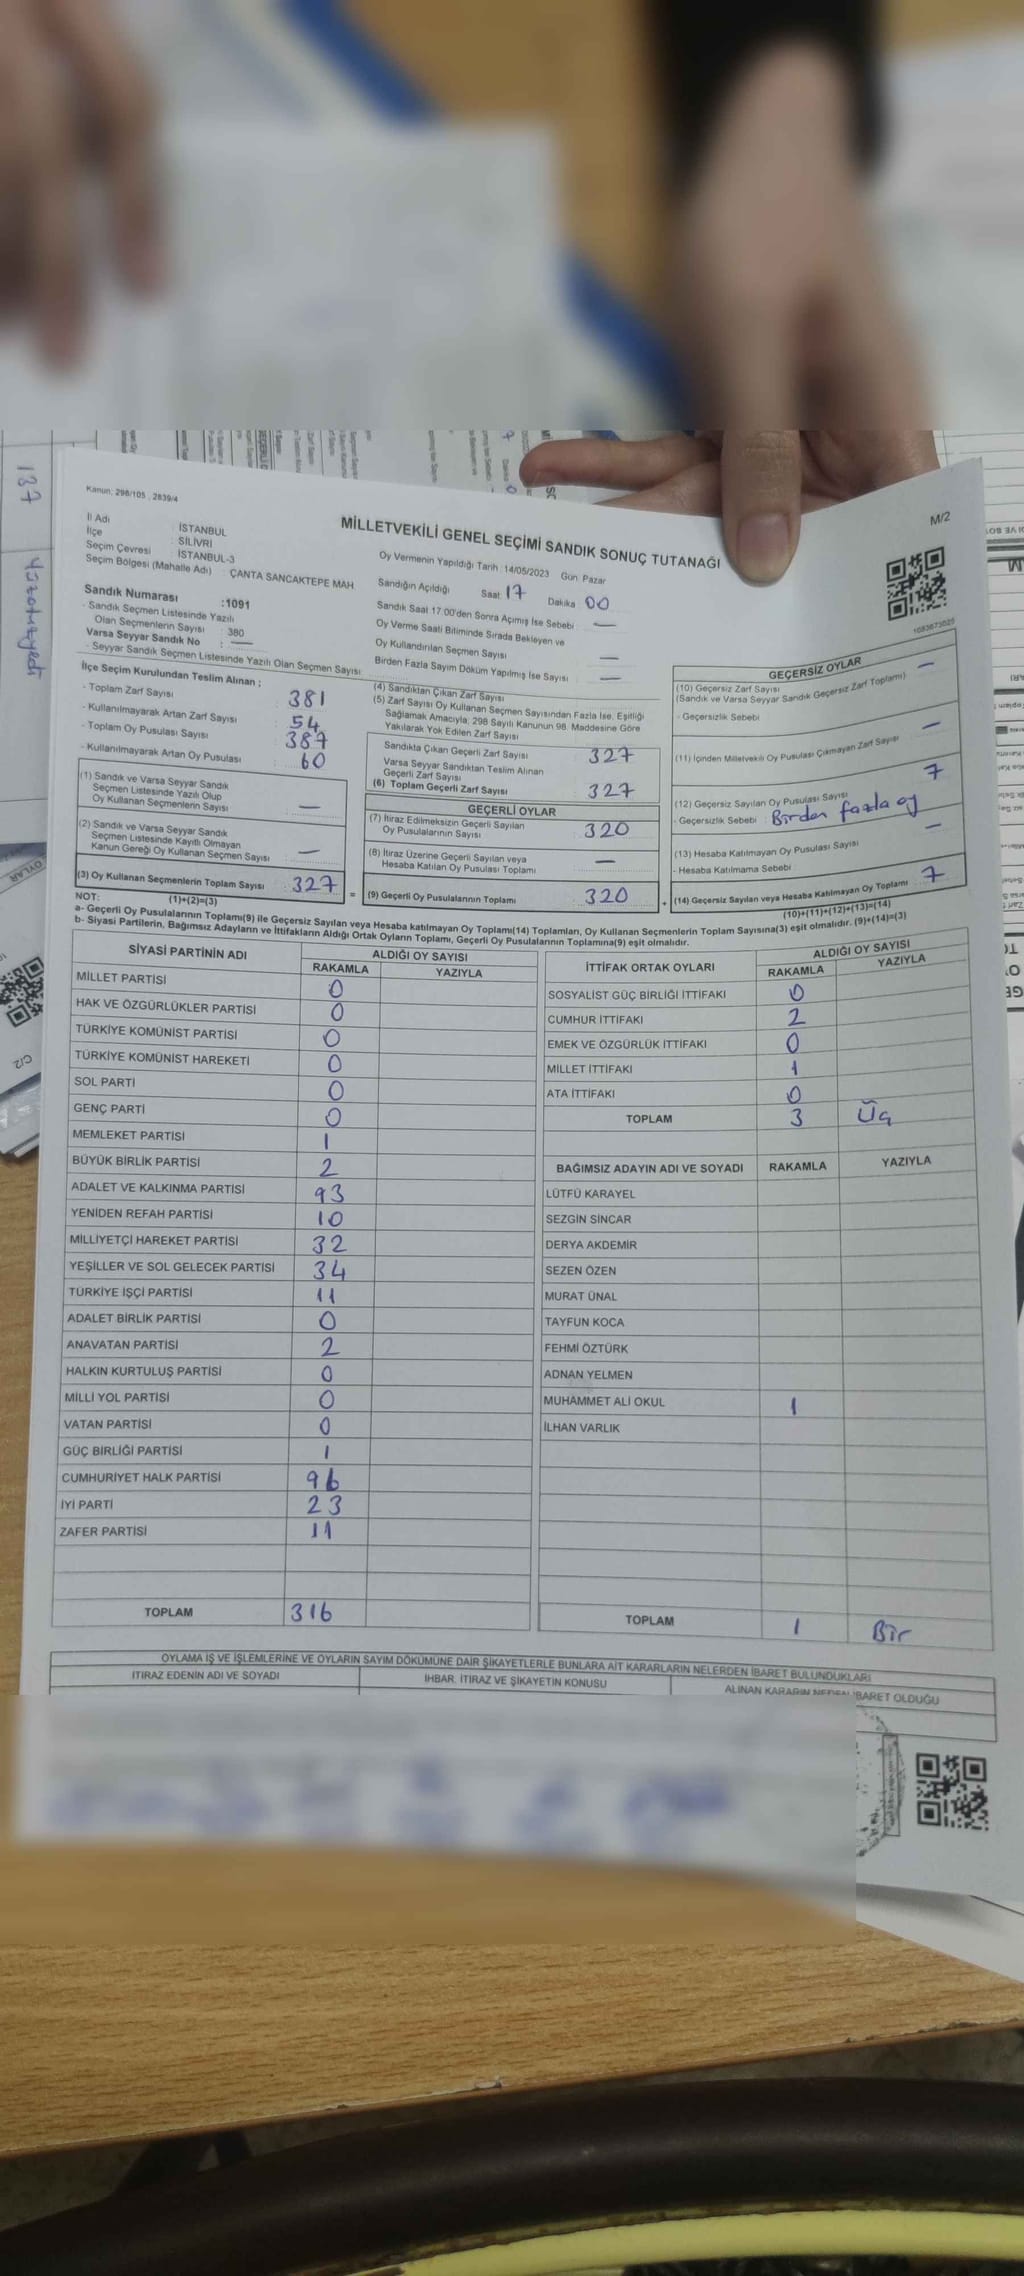 137
Yüzotuzyedi
Kanun: 298/105 , 2839/4
M/2
MİLLETVEKİLİ GENEL SEÇİMİ SANDIK SONUÇ TUTANAĞI
İl Adı : İSTANBUL
İlçe : SİLİVRİ
Seçim Çevresi : İSTANBUL-3
Seçim Bölgesi (Mahalle Adı) : ÇANTA SANCAKTEPE MAH.
Oy Vermenin Yapıldığı Tarih : 14/05/2023 Gün: Pazar
Sandığın Açıldığı Saat: 17 Dakika 00
Sandık Saat 17:00'den Sonra Açımış İse Sebebi : —
Oy Verme Saati Bitiminde Sırada Bekleyen ve
Oy Kullandırılan Seçmen Sayısı —
Birden Fazla Sayım Döküm Yapılmış İse Sayısı : —
Sandık Numarası :1091
- Sandık Seçmen Listesinde Yazılı
Olan Seçmenlerin Sayısı : 380
Varsa Seyyar Sandık No : —
- Seyyar Sandık Seçmen Listesinde Yazılı Olan Seçmen Sayısı
İlçe Seçim Kurulundan Teslim Alınan ;
- Toplam Zarf Sayısı : 381
- Kullanılmayarak Artan Zarf Sayısı : 54
- Toplam Oy Pusulası Sayısı : 387
- Kullanılmayarak Artan Oy Pusulası : 60
(1) Sandık ve Varsa Seyyar Sandık
Seçmen Listesinde Yazılı Olup
Oy Kullanan Seçmenlerin Sayısı —
(2) Sandık ve Varsa Seyyar Sandık
Seçmen Listesinde Kayıtlı Olmayan
Kanun Gereği Oy Kullanan Seçmen Sayısı —
(3) Oy Kullanan Seçmenlerin Toplam Sayısı : 327
(1)+(2)=(3)
(4) Sandıktan Çıkan Zarf Sayısı
(5) Zarf Sayısı Oy Kullanan Seçmen Sayısından Fazla İse, Eşitliği
Sağlamak Amacıyla; 298 Sayılı Kanunun 98. Maddesine Göre
Yakılarak Yok Edilen Zarf Sayısı
Sandıkta Çıkan Geçerli Zarf Sayısı 327
Varsa Seyyar Sandıktan Teslim Alınan
Geçerli Zarf Sayısı
(6) Toplam Geçerli Zarf Sayısı 327
GEÇERLİ OYLAR
(7) İtiraz Edilmeksizin Geçerli Sayılan
Oy Pusulalarının Sayısı 320
(8) İtiraz Üzerine Geçerli Sayılan veya
Hesaba Katılan Oy Pusulası Toplamı —
(9) Geçerli Oy Pusulalarının Toplamı 320
1083673025
GEÇERSİZ OYLAR
(10) Geçersiz Zarf Sayısı —
(Sandık ve Varsa Seyyar Sandık Geçersiz Zarf Toplamı)
- Geçersizlik Sebebi
(11) İçinden Milletvekili Oy Pusulası Çıkmayan Zarf Sayısı —
(12) Geçersiz Sayılan Oy Pusulası Sayısı 7
- Geçersizlik Sebebi : Birden fazla oy
(13) Hesaba Katılmayan Oy Pusulası Sayısı —
- Hesaba Katılmama Sebebi
(14) Geçersiz Sayılan veya Hesaba Katılmayan Oy Toplamı 7
(10)+(11)+(12)+(13)=(14)
NOT:
a- Geçerli Oy Pusulalarının Toplamı(9) ile Geçersiz Sayılan veya Hesaba katılmayan Oy Toplamı(14) Toplamları, Oy Kullanan Seçmenlerin Toplam Sayısına(3) eşit olmalıdır. (9)+(14)=(3)
b- Siyasi Partilerin, Bağımsız Adayların ve İttifakların Aldığı Ortak Oyların Toplamı, Geçerli Oy Pusulalarının Toplamına(9) eşit olmalıdır.
SİYASİ PARTİNİN ADI ALDIĞI OY SAYISI
RAKAMLA YAZIYLA
MİLLET PARTİSİ 0
HAK VE ÖZGÜRLÜKLER PARTİSİ 0
TÜRKİYE KOMÜNİST PARTİSİ 0
TÜRKİYE KOMÜNİST HAREKETİ 0
SOL PARTİ 0
GENÇ PARTİ 0
MEMLEKET PARTİSİ 1
BÜYÜK BİRLİK PARTİSİ 2
ADALET VE KALKINMA PARTİSİ 93
YENİDEN REFAH PARTİSİ 10
MİLLİYETÇİ HAREKET PARTİSİ 32
YEŞİLLER VE SOL GELECEK PARTİSİ 34
TÜRKİYE İŞÇİ PARTİSİ 11
ADALET BİRLİK PARTİSİ 0
ANAVATAN PARTİSİ 2
HALKIN KURTULUŞ PARTİSİ 0
MİLLİ YOL PARTİSİ 0
VATAN PARTİSİ 0
GÜÇ BİRLİĞİ PARTİSİ 1
CUMHURİYET HALK PARTİSİ 96
İYİ PARTİ 23
ZAFER PARTİSİ 11
TOPLAM 316
İTTİFAK ORTAK OYLARI ALDIĞI OY SAYISI
RAKAMLA YAZIYLA
SOSYALİST GÜÇ BİRLİĞİ İTTİFAKI 0
CUMHUR İTTİFAKI 2
EMEK VE ÖZGÜRLÜK İTTİFAKI 0
MİLLET İTTİFAKI 1
ATA İTTİFAKI 0
TOPLAM 3 Üç
BAĞIMSIZ ADAYIN ADI VE SOYADI RAKAMLA YAZIYLA
LÜTFÜ KARAYEL
SEZGİN SİNCAR
DERYA AKDEMİR
SEZEN ÖZEN
MURAT ÜNAL
TAYFUN KOCA
FEHMİ ÖZTÜRK
ADNAN YELMEN
MUHAMMET ALİ OKUL 1
İLHAN VARLIK
TOPLAM 1 Bir
OYLAMA İŞ VE İŞLEMLERİNE VE OYLARIN SAYIM DÖKÜMÜNE DAİR ŞİKAYETLERLE BUNLARA AİT KARARLARIN NELERDEN İBARET BULUNDUKLARI
İTİRAZ EDENİN ADI VE SOYADI İHBAR, İTİRAZ VE ŞİKAYETİN KONUSU ALINAN KARARIN NEDEN İBARET OLDUĞU
OYLAR
C/2